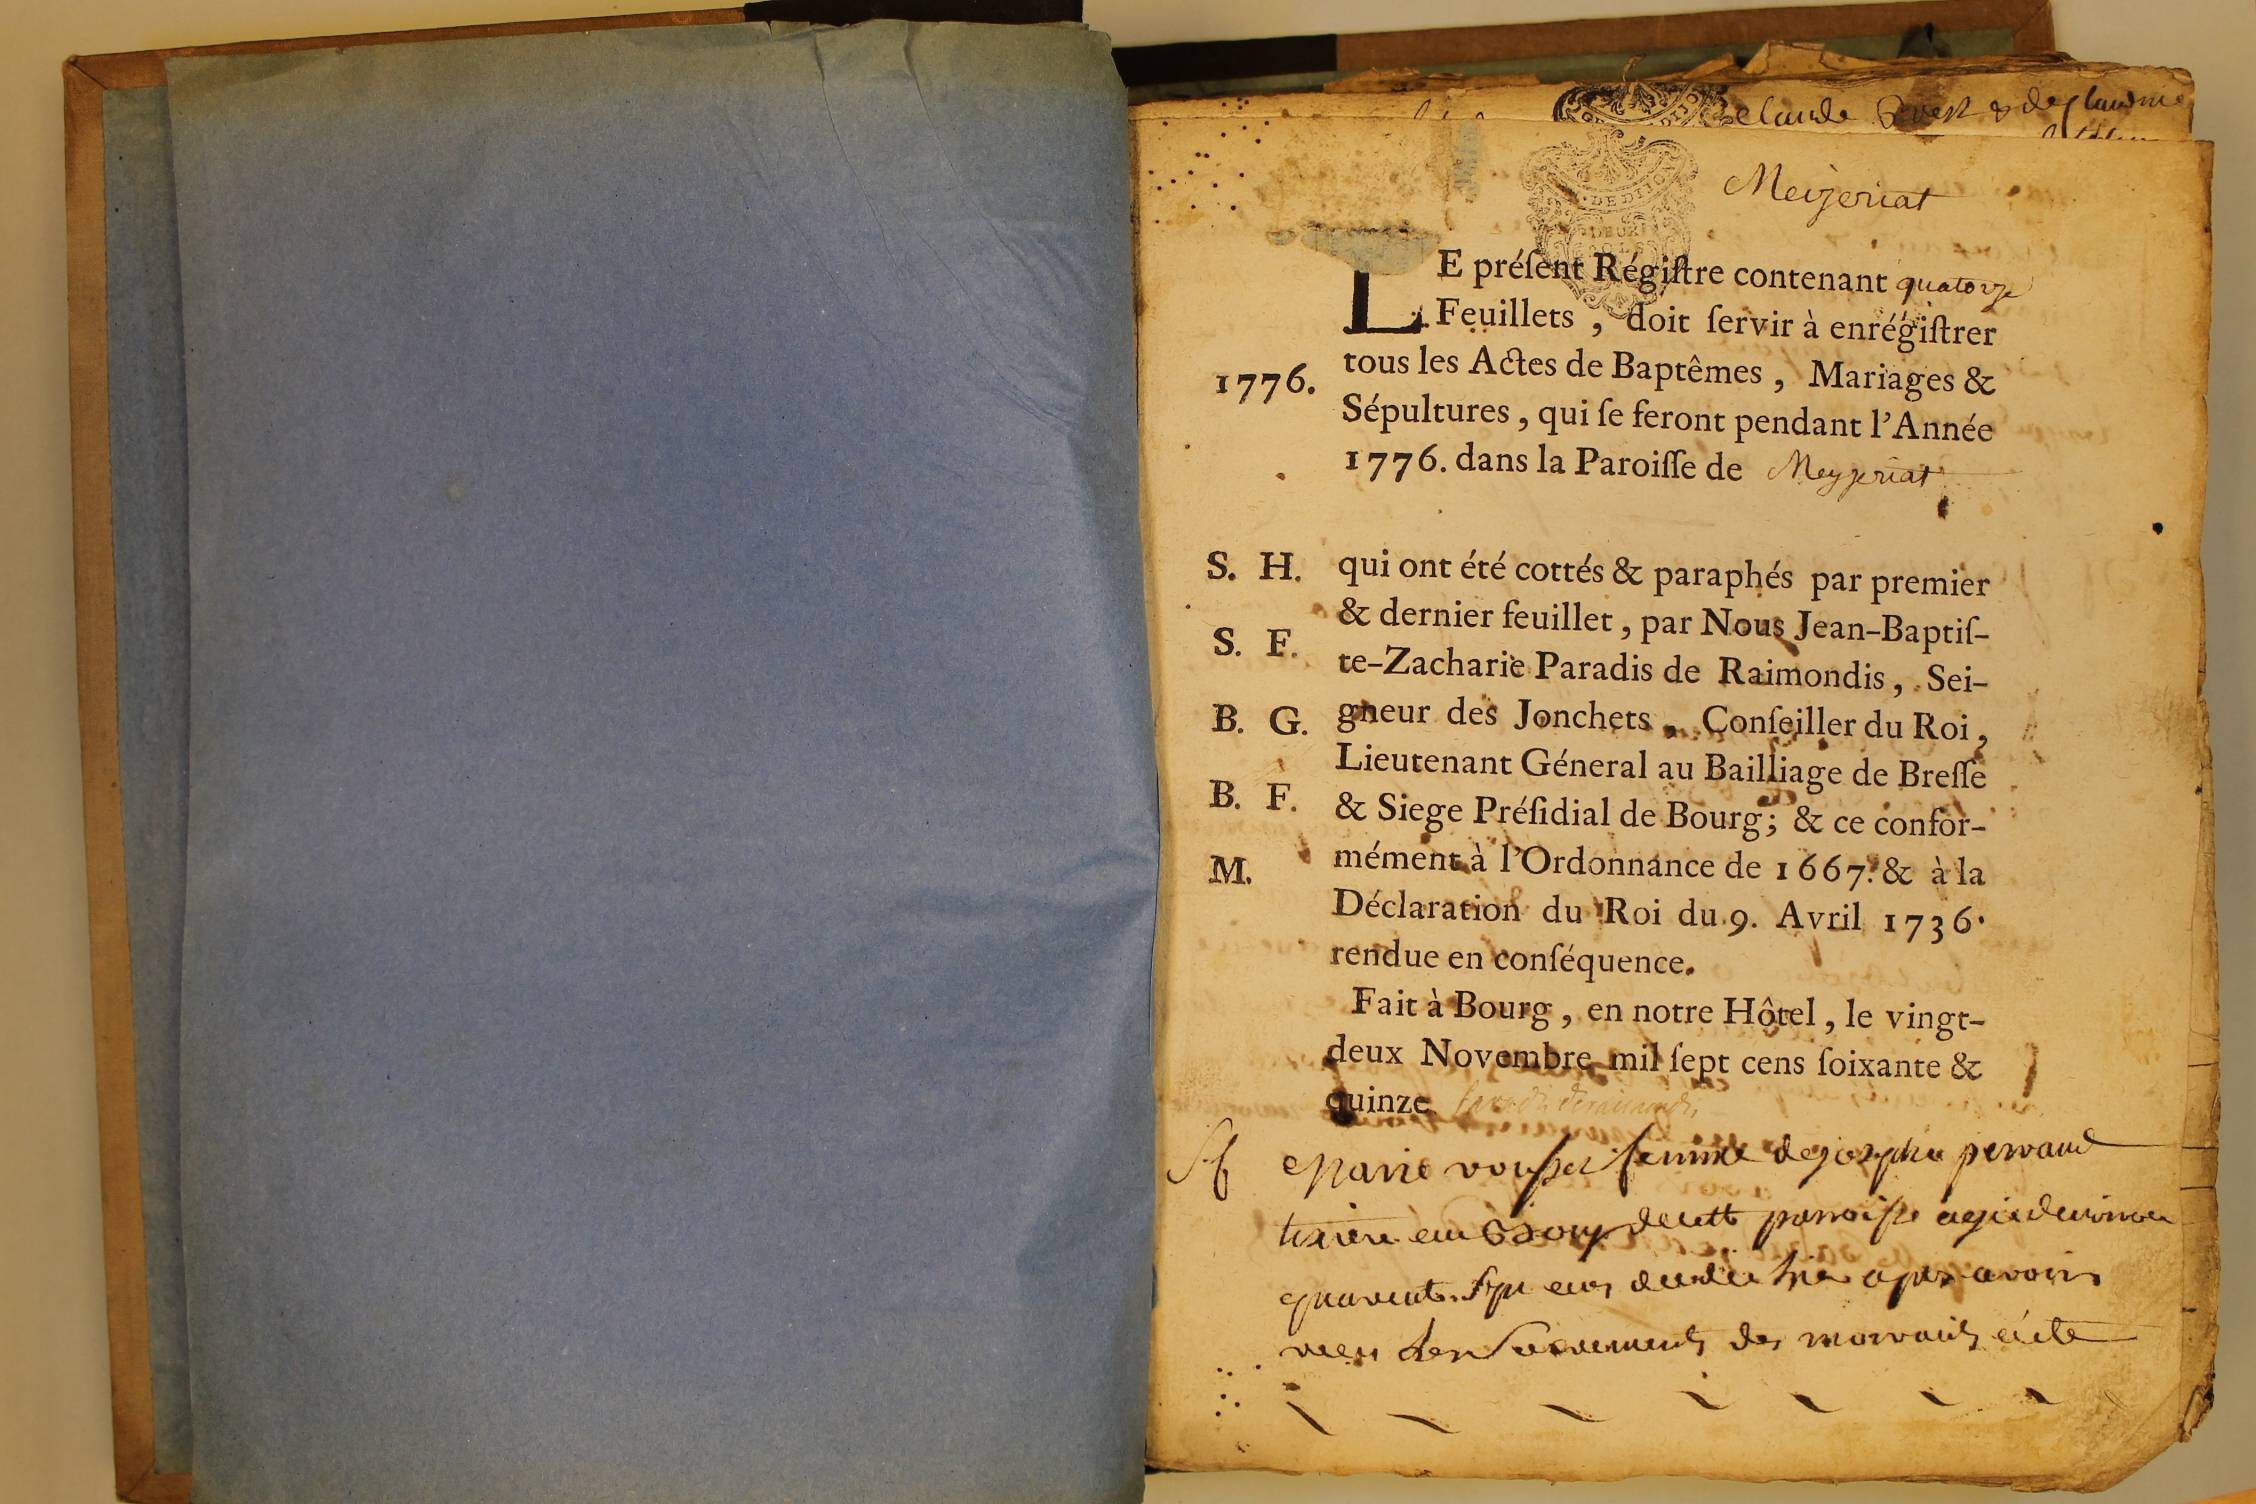 claude
Meyzeriat
DE DIJON
DEUX
SOLS
LE préſent Régiſtre contenant quatorze
Feuillets, doit ſervir à enrégiſtrer
tous les Actes de Baptêmes, Mariages &
1776.
Sépultures, qui ſe feront pendant l'Année
1776. dans la Paroiſſe de Meyzeriat
S. H.
qui ont été cottés & paraphés par premier
& dernier feuillet, par Nous Jean-Baptiſ-
S. F.
te-Zacharie Paradis de Raimondis, Sei-
B. G.
gneur des Jonchets, Conſeiller du Roi,
Lieutenant Géneral au Bailliage de Breſſe
B. F.
& Siege Préſidial de Bourg; & ce confor-
M.
mément à l'Ordonnance de 1667. & à la
Déclaration du Roi du 9. Avril 1736.
rendue en conſéquence.
Fait à Bourg, en notre Hôtel, le vingt-
deux Novembre mil ſept cens ſoixante &
quinze
Sf
Marie femme de joseph
de cette parroisse agée d'environ
quarante sept ans hier apres avoir
les Sacrements des mourants